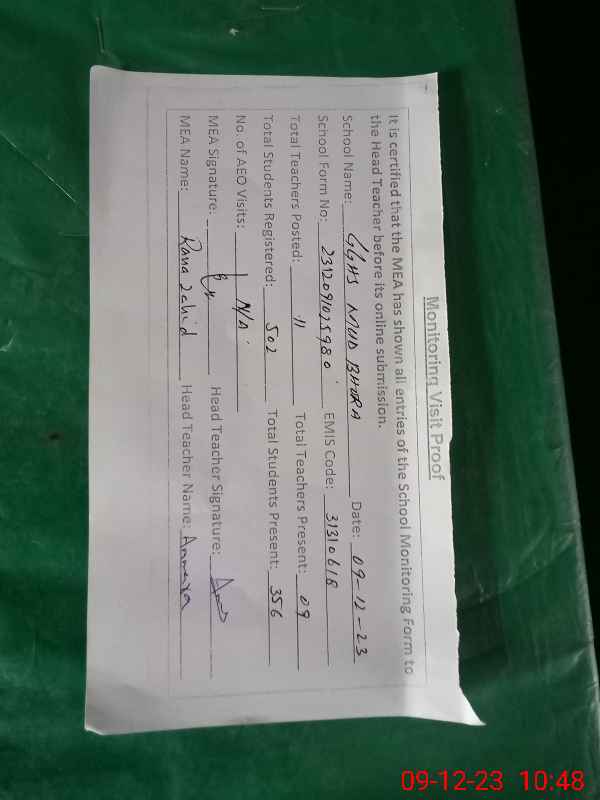 Monitoring Visit Proof
It is certified that the MEA has shown all entries of the School Monitoring Form to
the Head Teacher before its online submission.
School Name: GGHS MUD BHORA Date: 09-12-23
School Form No: 2312091025980 EMIS Code: 31310618
Total Teachers Posted: 11 Total Teachers Present: 09
Total Students Registered: 502 Total Students Present: 356
No. of AEO Visits: N/A
MEA Signature: Head Teacher Signature:
MEA Name: Rana Zahid Head Teacher Name:
09-12-23 10:48